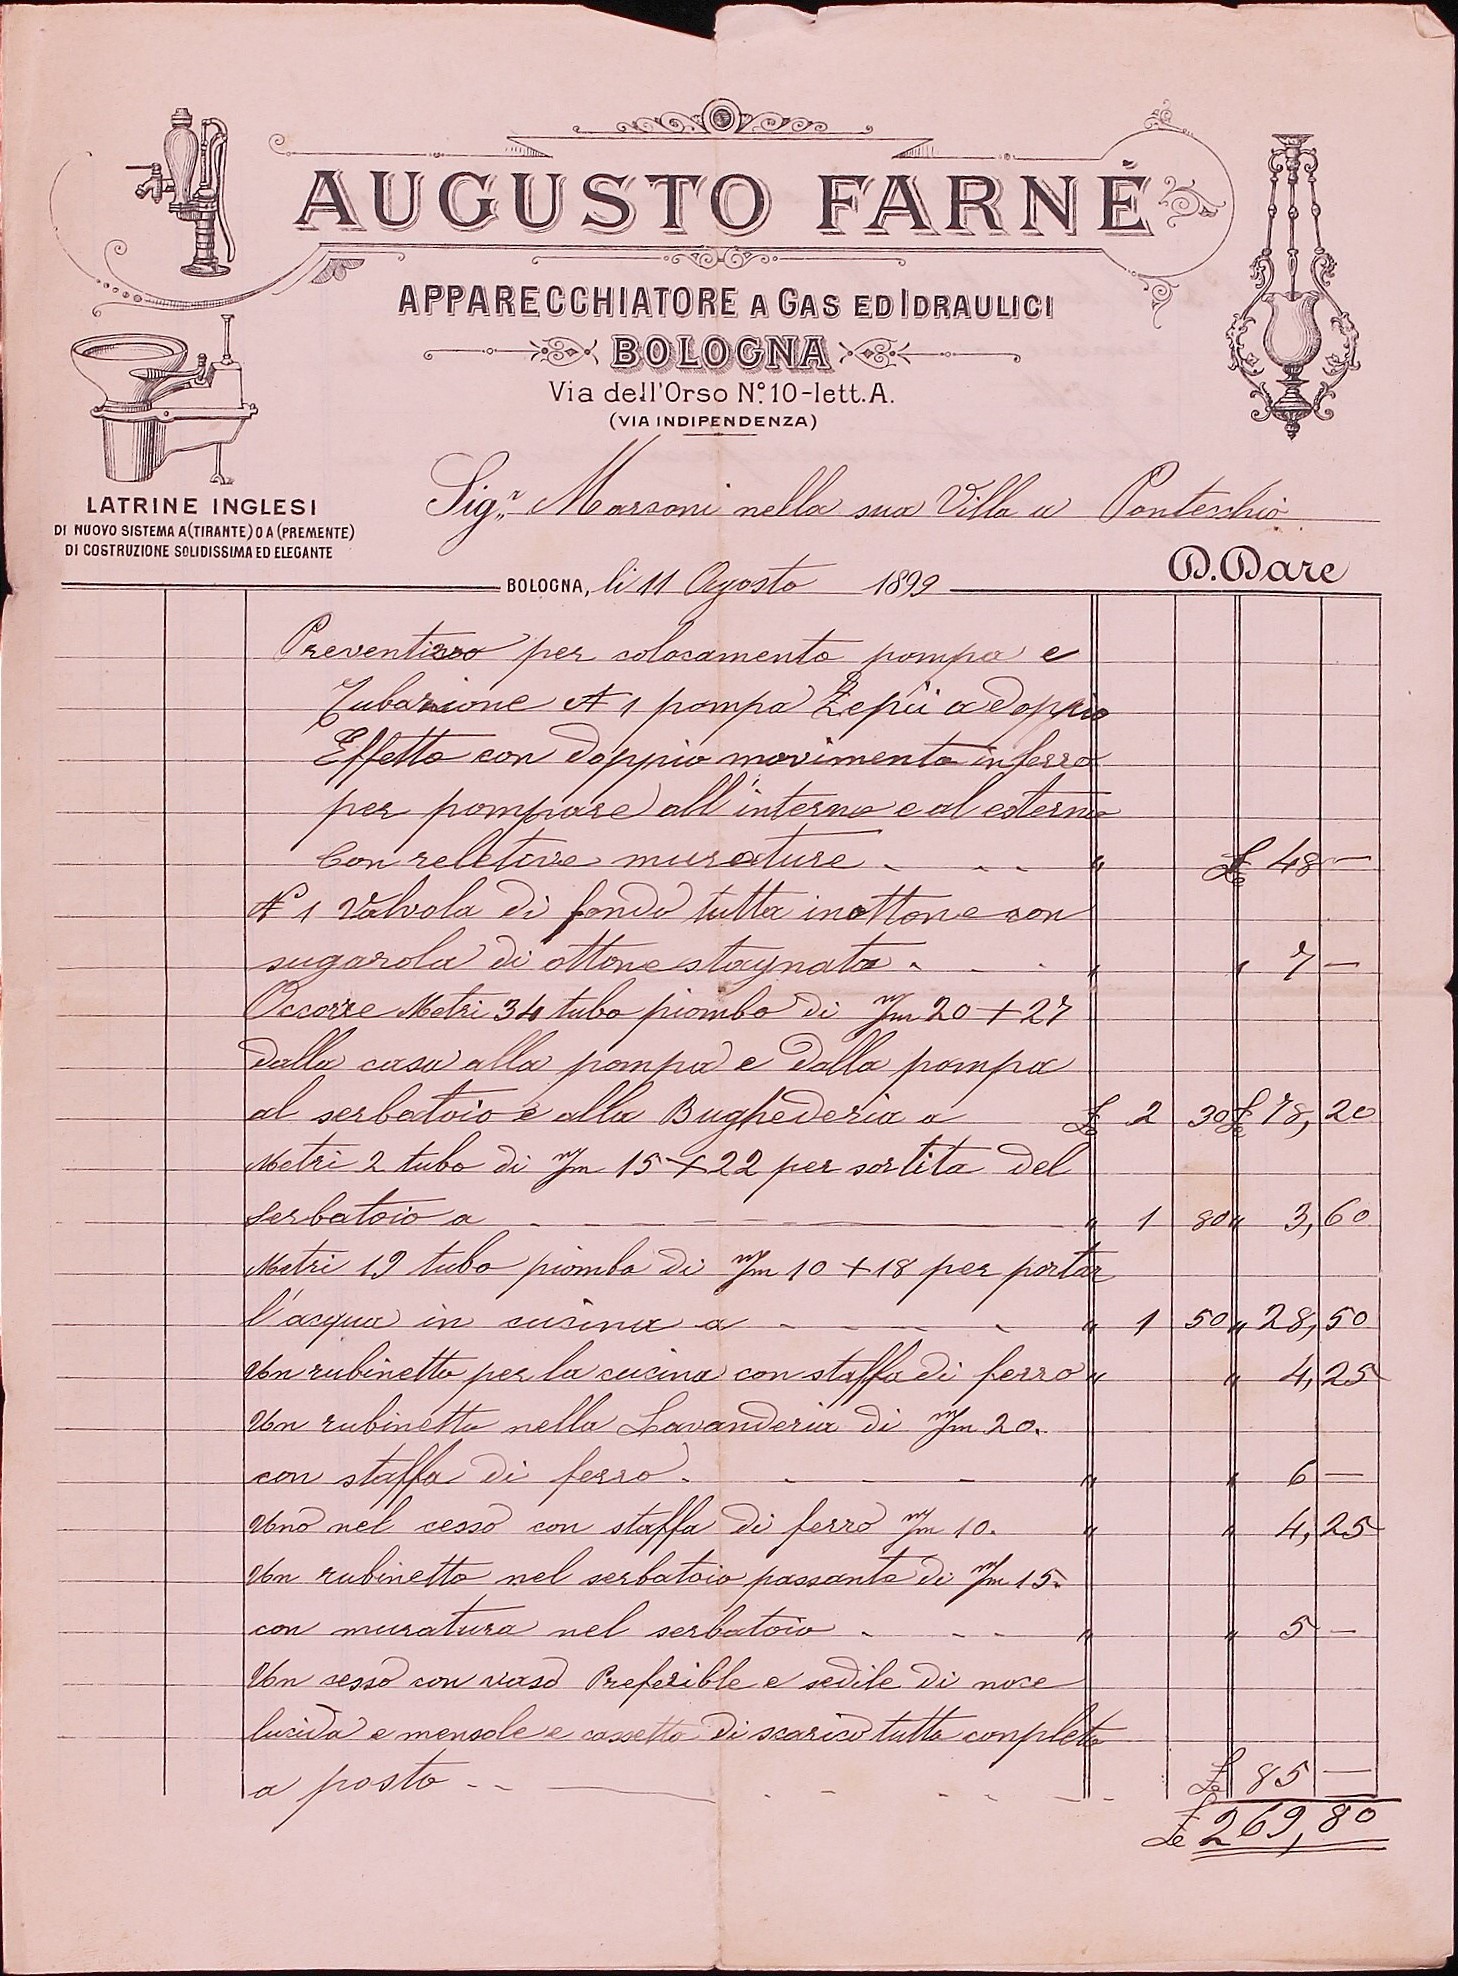 AUGUSTO FARNÈ
APPARECCHIATORE A GAS ED IDRAULICI
BOLOGNA
Via dell'Orso N.º 10-lett. A.
(VIA INDIPENDENZA)
LATRINE INGLESI
DI NUOVO SISTEMA A (TIRANTE) O A (PREMENTE)
DI COSTRUZIONE SOLIDISSIMA ED ELEGANTE
Sig.r Marconi nella sua Villa a Pontecchio
D. Dare
BOLOGNA, li 11 Agosto 1899
Preventivo per colocamento pompa e
Tubazione N 1 pompa a doppio
Effetto con doppio movimento in ferro
per pompare all'interno e al esterno
Con reletive murature . . . " £ 48 —
N 1 Valvola di fondo tutta in ottone con
sugarola di ottone stagnato . . . " " 7 —
Occorre Metri 34 tubo piombo di m/m 20 + 27
dalla casa alla pompa e dalla pompa
al serbatoio e alla Bughederia a £ 2 30 £ 78, 20
Metri 2 tubo di m/m 15 + 22 per sortita del
serbatoio a " 1 80 " 3, 60
Metri 19 tubo piombo di m/m 10 + 18 per portar
l'acqua in cucina a " 1 50 " 28, 50
Un rubinetto per la cucina con staffa di ferro " " 4, 25
Un rubinetto nella Lavanderia di m/m 20.
con staffa di ferro. " " 6 —
Uno nel cesso con staffa di ferro m/m 10. " " 4, 25
Un rubinetto nel serbatoio passante di m/m 15.
con muratura nel serbatoio . . . " " 5 —
Un cesso con vaso Preferible e sedile di noce
lucida e mensole e cassetta di scarico tutto conpleto
a posto £ 85 —
£ 269, 80